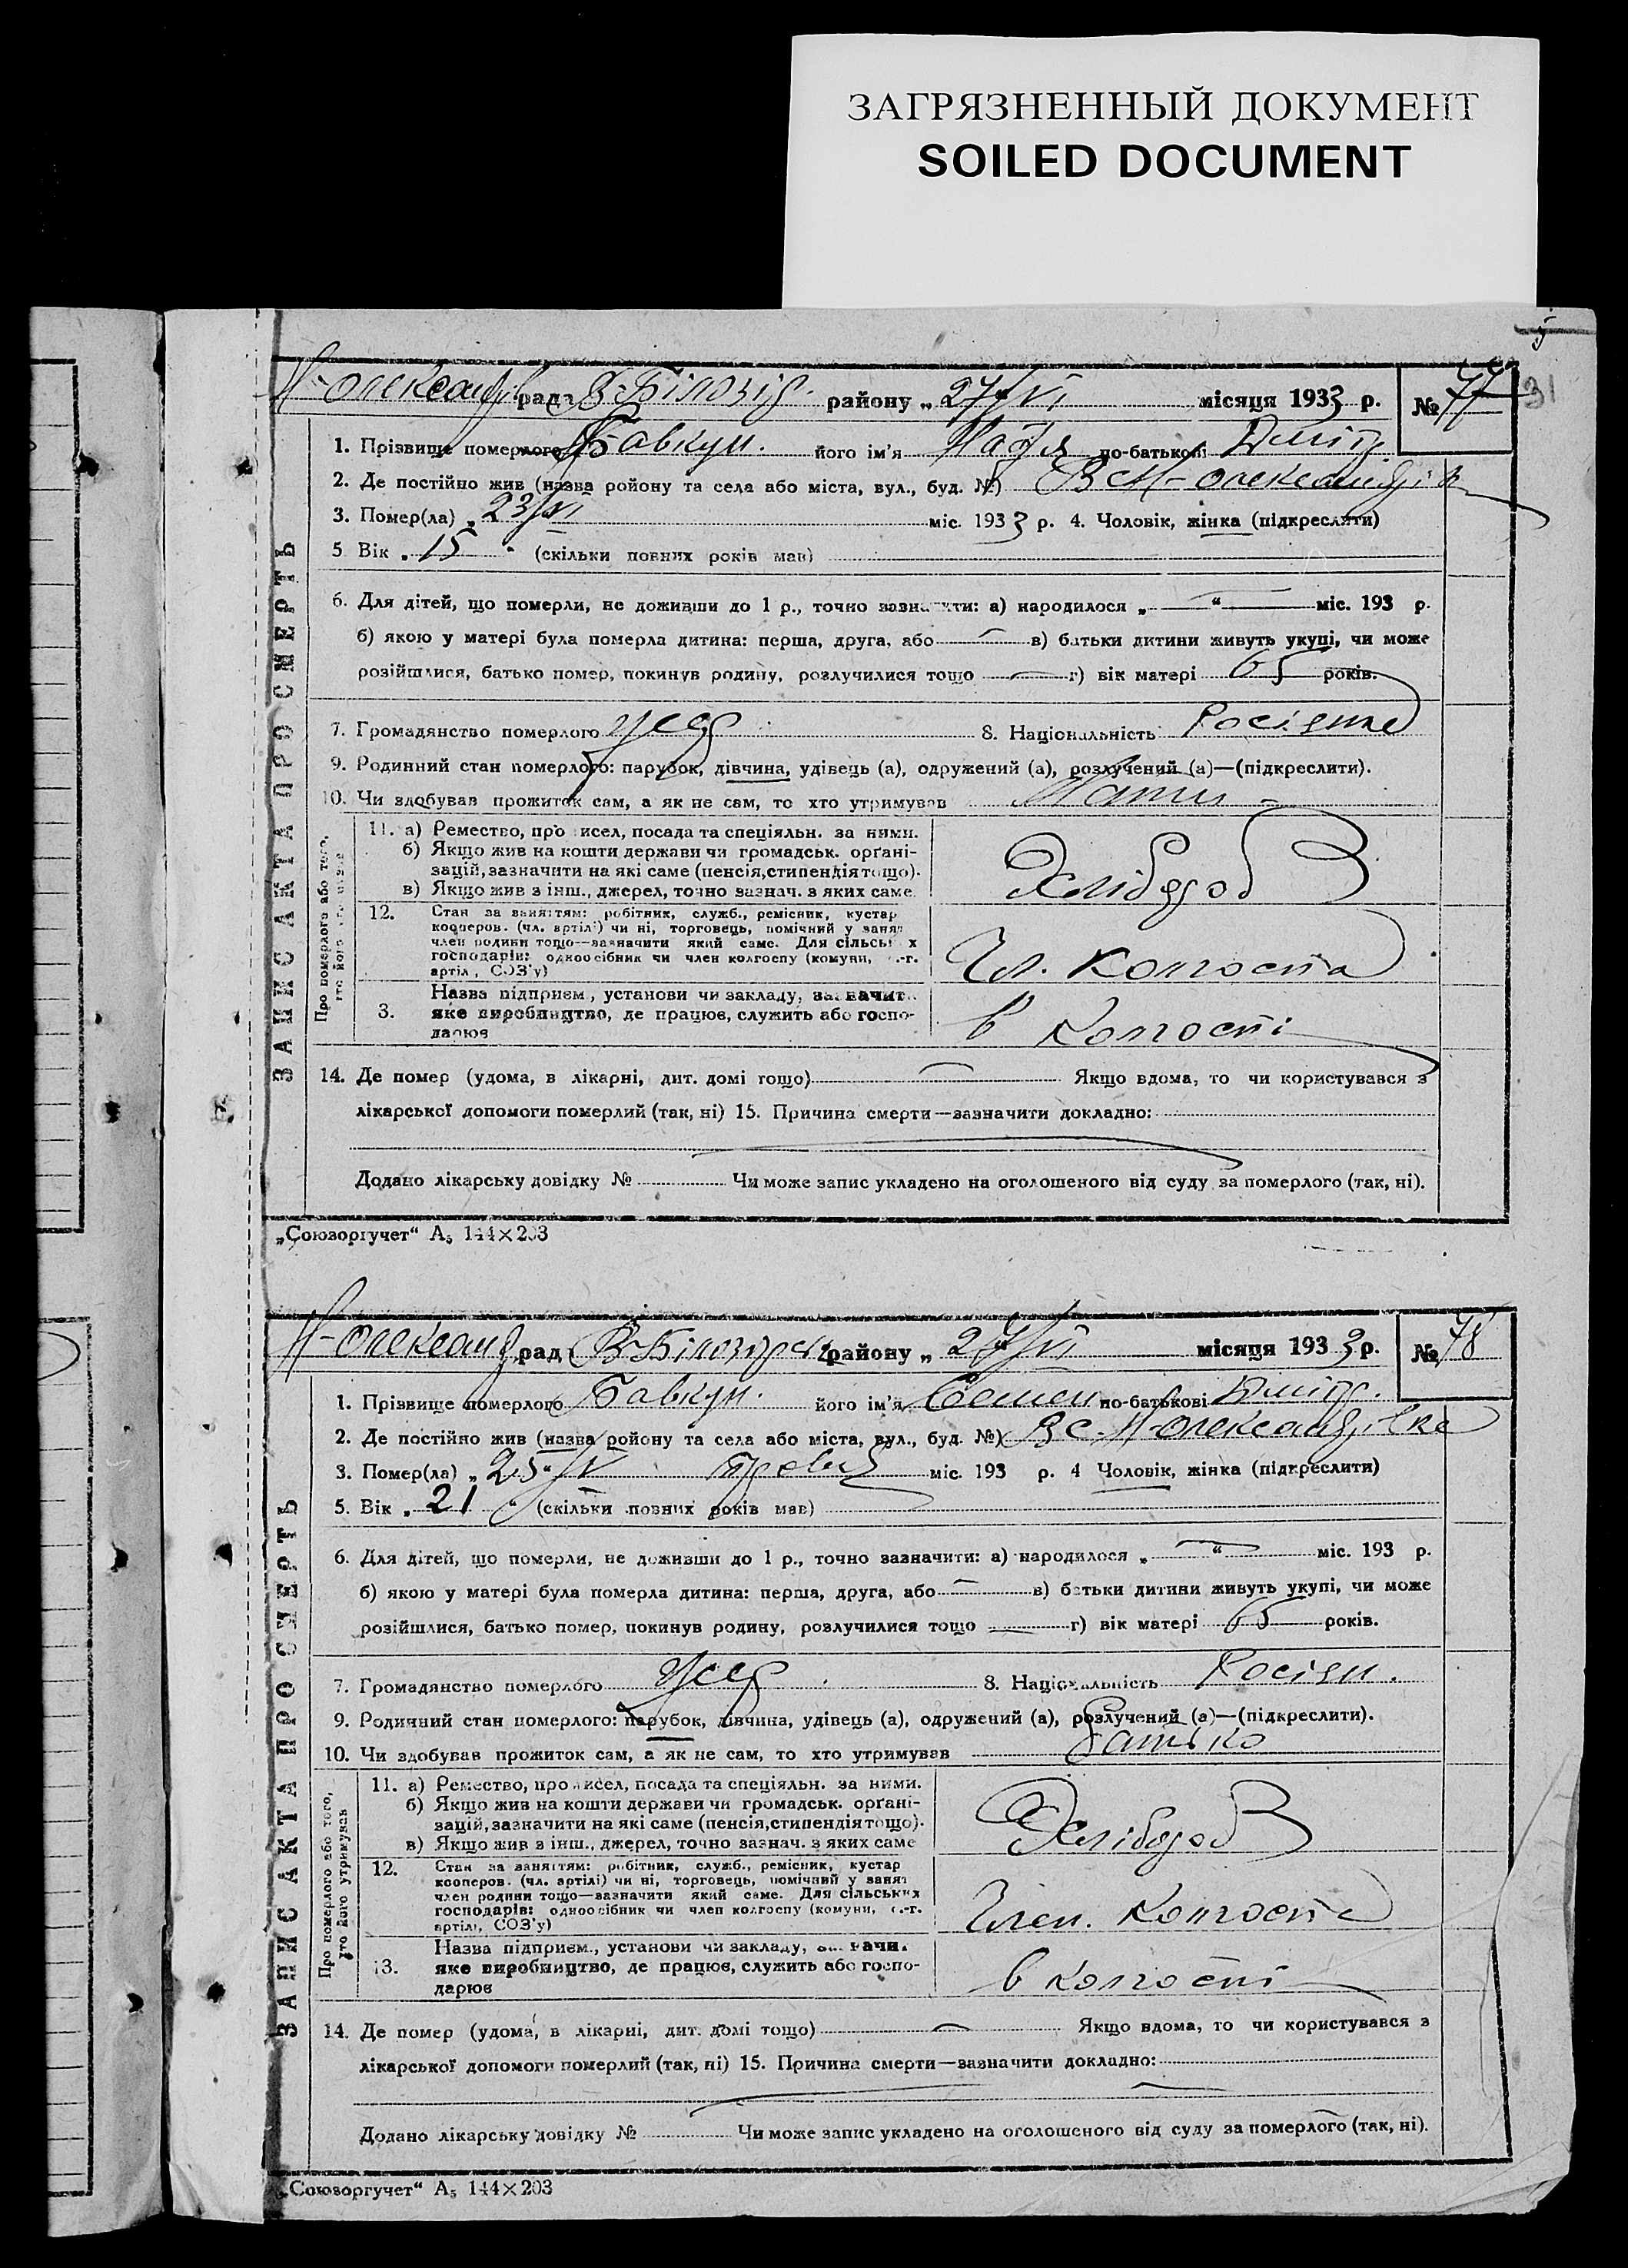 ЗАГРЯЗНЕННЫЙ ДОКУМЕНТ
SOILED DOCUMENT
31
рада В-Білозір. району „ 27/VI місяця 1933 р. № 77
ЗАПИС АКТА ПРО СМЕРТЬ
1. Прізвище померлого Бавкун. його ім'я по-батькові Дмітр
2. Де постійно жив (назва ройону та села або міста, вул., буд. №)
3. Помер(ла) „ 23/VI міс. 1933 р. 4. Чоловік, жінка (підкреслити)
5 Вік „ 15 “ (скільки повних років мав)
6. Для дітей, що померли, не доживши до 1 р., точно зазначити: а) народилося „ — “ міс. 193 р.
б) якою у матері була померла дитина: перша, друга, або — в) батьки дитини живуть укупі, чи може
розійшлися, батько помер, покинув родину, розлучилися тощо — г) вік матері 65 років.
7. Громадянство померлого усср 8. Національність
9. Родинний стан померлого: парубок, дівчина, удівець (а), одружений (а), розлучений (а)—(підкреслити).
10. Чи здобував прожиток сам, а як не сам, то хто утримував
Про померлого або того, хто його утримував
11. а) Ремество, промисел, посада та спеціяльн. за ними.
б) Якщо жив на кошти держави чи громадськ. органі-
зацій, зазначити на які саме (пенсія, стипендія тощо).
в) Якщо жив з інш., джерел, точно зазнач. з яких саме.
Хлібороб
12. Стан за заняттям: робітник, служб., ремісник, кустар
кооперов. (чл. артілі) чи ні, торговець, помічний у занят
член родини тощо—зазначити який саме. Для сільських
господарів: одноосібник чи член колгоспу (комуни, с.-г.
артіл, СОЗ'у)
Чл. колгоспа
3. Назва підприєм., установи чи закладу, зазначит.
яке виробництво, де працює, служить або госпо-
дарює
в колгоспі
14. Де помер (удома, в лікарні, дит. домі тощо) — Якщо вдома, то чи користувався з
лікарської допомоги померлий (так, ні) 15. Причина смерти—зазначити докладно:
Додано лікарську довідку № Чи може запис укладено на оголошеного від суду за померлого (так, ні).
„Союзоргучет“ А₅ 144×203
рад В-Білозірськ району „ 27/VI місяця 1933 р. № 78
ЗАПИС АКТА ПРО СМЕРТЬ
1. Прізвище померлого Бавкун. його ім'я Семен по-батькові Дмітр.
2. Де постійно жив (назва ройону та села або міста, вул., буд. №) В с. М-олександрівка
3. Помер(ла) „ 25 “ міс. 193 р. 4 Чоловік, жінка (підкреслити)
5. Вік „ 21 “ (скільки повних років мав)
6. Для дітей, що померли, не доживши до 1 р., точно зазначити: а) народилося „ — “ міс. 193 р.
б) якою у матері була померла дитина: перша, друга, або — в) батьки дитини живуть укупі, чи може
розійшлися, батько помер, покинув родину, розлучилися тощо — г) вік матері 65 років.
7. Громадянство померлого усср 8. Національність Росіян.
9. Родинний стан померлого: парубок, дівчина, удівець (а), одружений (а), розлучений (а)—(підкреслити).
10. Чи здобував прожиток сам, а як не сам, то хто утримував Батько
Про померлого або того, хто його утримував
11. а) Ремество, промисел, посада та спеціяльн. за ними.
б) Якщо жив на кошти держави чи громадськ. органі-
зацій, зазначити на які саме (пенсія, стипендія тощо).
в) Якщо жив з інш., джерел, точно зазнач. з яких саме
Хлібороб
12. Стан за заняттям: робітник, служб., ремісник, кустар
кооперов. (чл. артілі) чи ні, торговець, помічний у занят
член родини тощо—зазначити який саме. Для сільських
господарів: одноосібник чи член колгоспу (комуни, с.-г.
артілі, СОЗ'у)
Член. колгоспа
13. Назва підприєм., установи чи закладу, зазначи.
яке виробництво, де працює, служить або госпо-
дарює
в колгоспі
14. Де помер (удома, в лікарні, дит. домі тощо) — Якщо вдома, то чи користувався з
лікарської допомоги померлий (так, ні) 15. Причина смерти—зазначити докладно:
Додано лікарську довідку № Чи може запис укладено на оголошеного від суду за померлого (так, ні).
„Союзоргучет“ А₅ 144×203